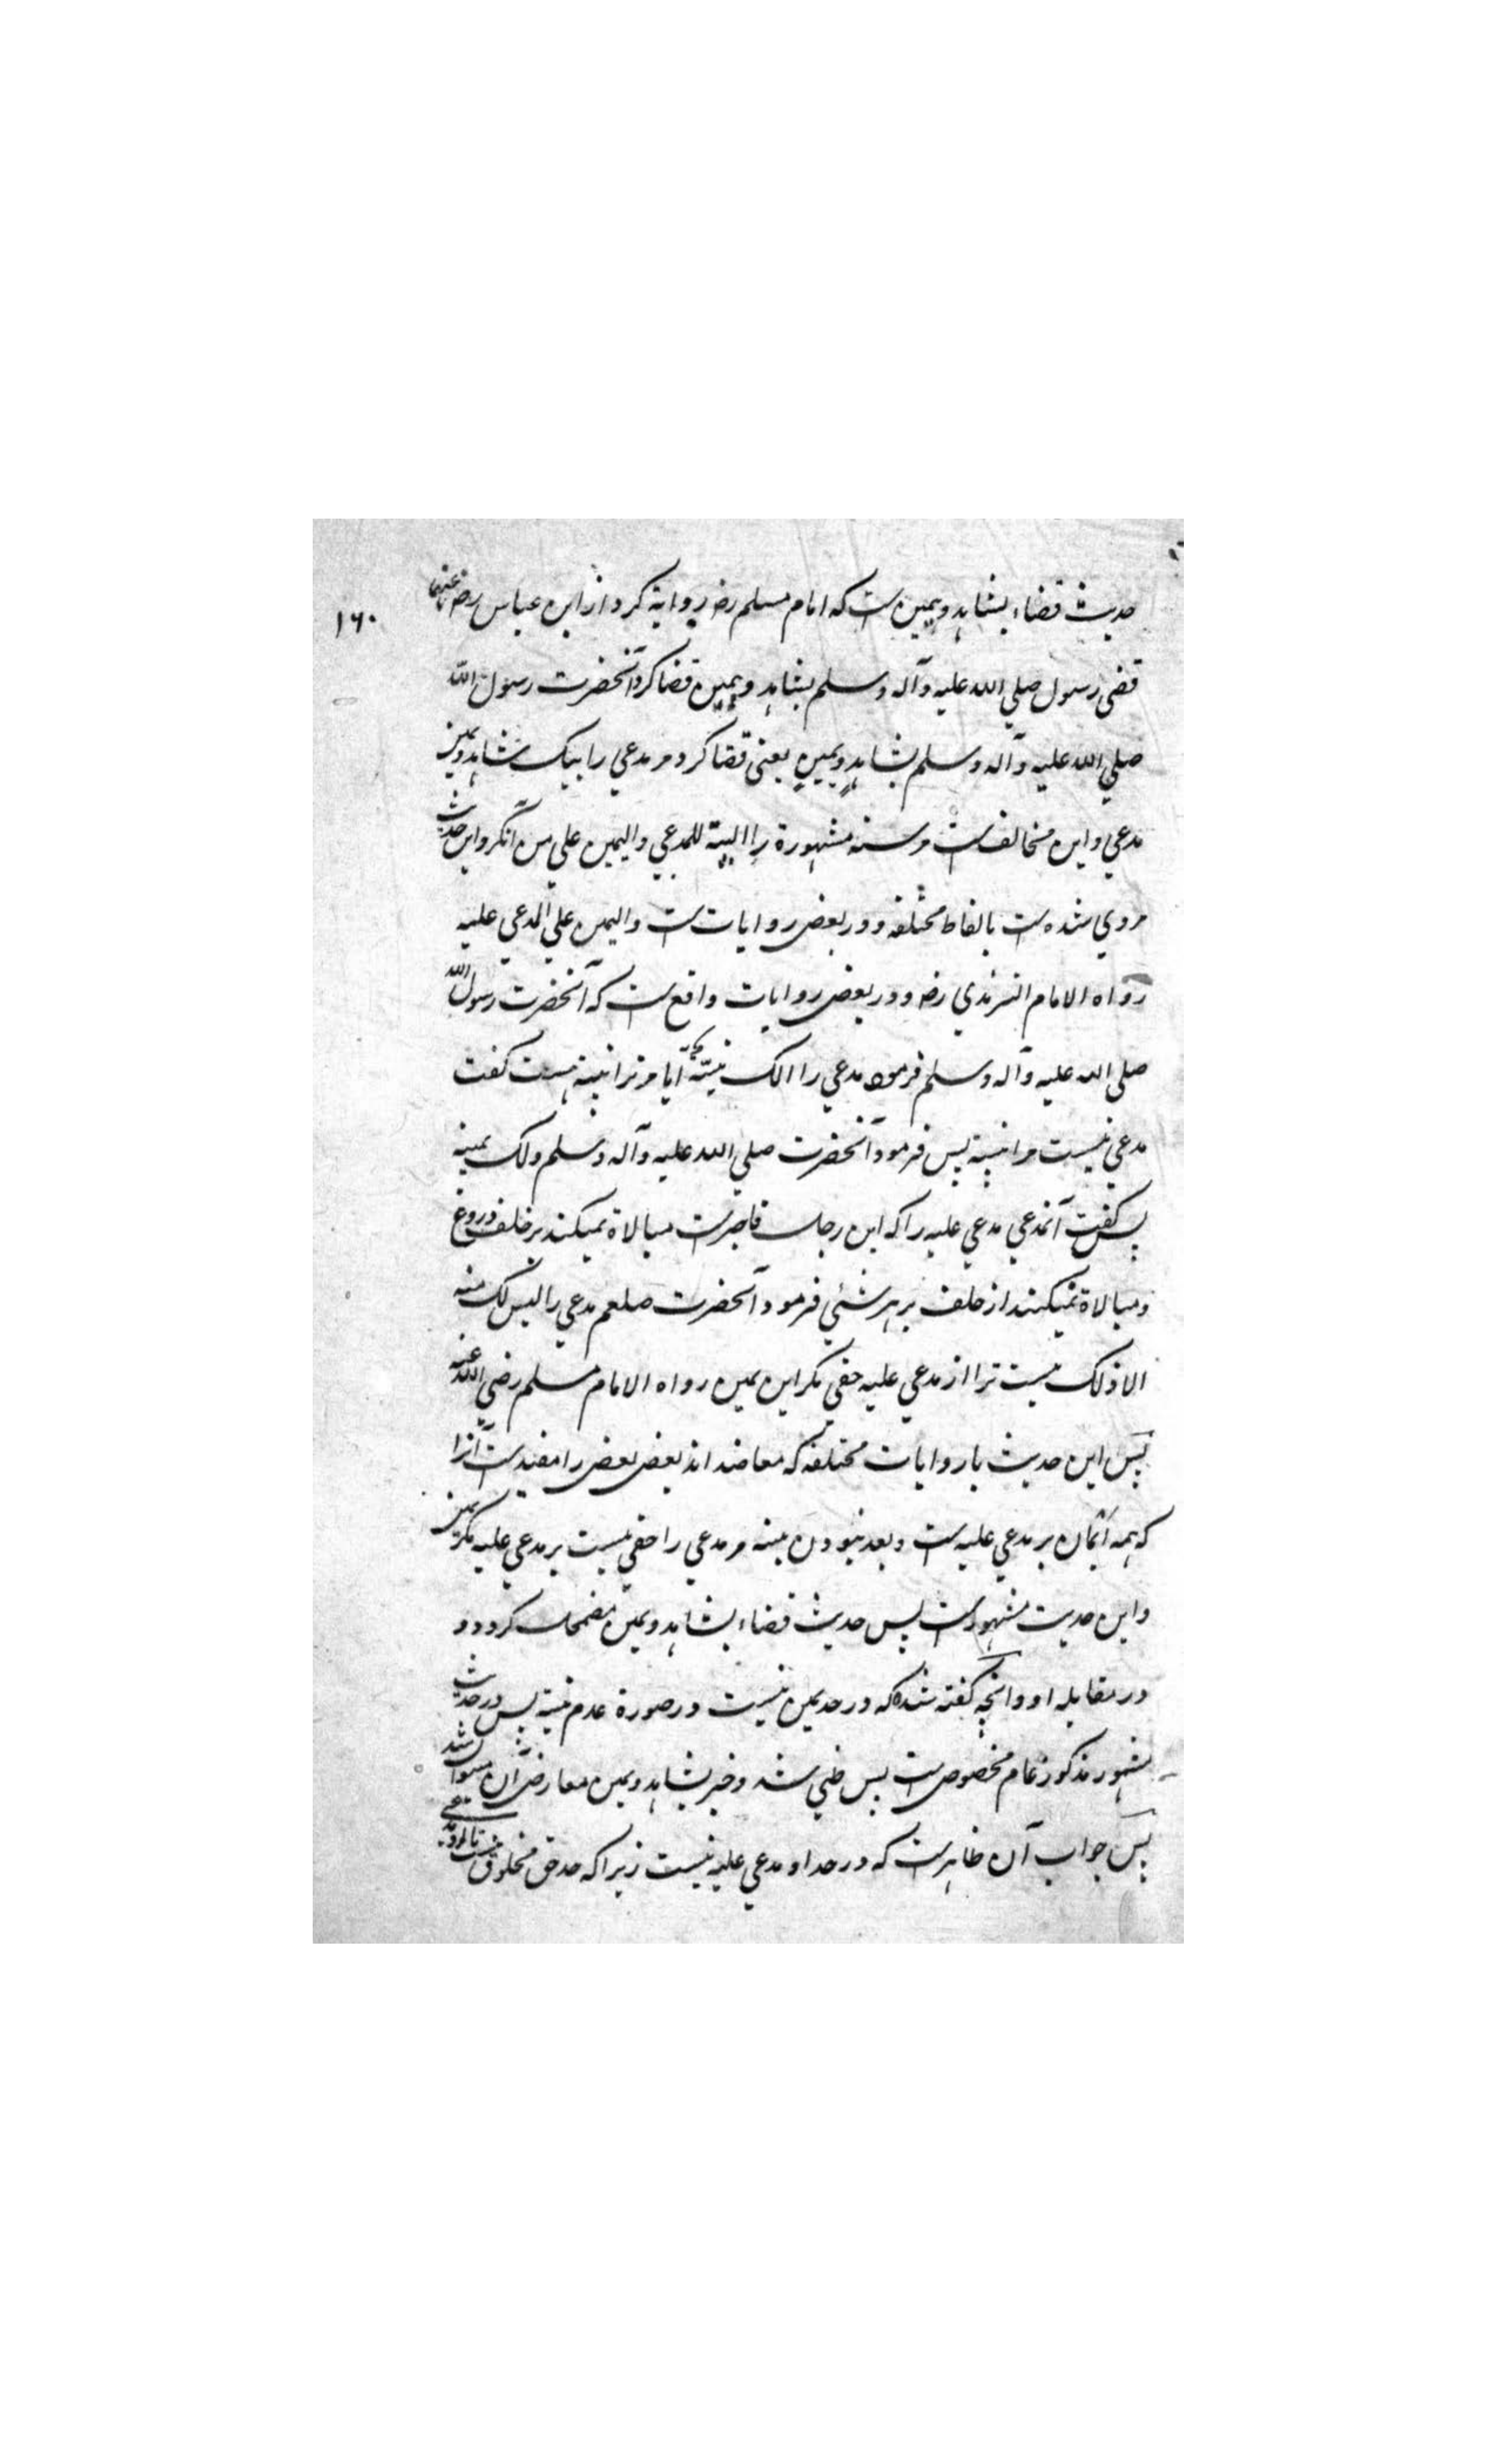 ۱۶۰
حدیث قضاء بشاهد ویمین ست که امام مسلم رض روایة کرد از ابن عباس رض عنهما
قضی رسول صلی الله علیه وآله وسلم بشاهد ویمین قضا کرد آنحضرت رسول الله
صلی الله علیه وآله وسلم بشاهد ویمین یعنی قضا کرد مر مدعی را بیک شاهد ویمین
مدعی واین مخالف ست مر سنه مشهورة را البینة للمدعی والیمین علی من انکر واین حدیث
مروی شده ست بالفاظ مختلفه ودر بعض روایات ست والیمین علی المدعی علیه
رواه الامام الترمذی رض ودر بعض روایات واقع ست که آنحضرت رسول الله
صلی الله علیه وآله وسلم فرمود مدعی را الک بینة آیا مر ترا بینه هست گفت
مدعی نیست مرا بینة پس فرمود آنحضرت صلی الله علیه وآله وسلم ولک یمینه
پس گفت آنمدعی مدعی علیه را که این رجل فاجر ست مبالاة نمیکند بر حلف دروغ
ومبالاة نمیکند از حلف بر هر شئی فرمود آنحضرت صلعم مدعی را لیس لک منه
الا ذلک نیست ترا از مدعی علیه حقی مگر این یمین رواه الامام مسلم رضی الله عنه
پس این حدیث با روایات مختلفه که معاضد اند بعض بعض را مفید ست آنرا
که همه ایمان بر مدعی علیه ست وبعد نبودن بینه مر مدعی را حقی نیست بر مدعی علیه مگر یمین
واین حدیث مشهور ست پس حدیث قضاء بشاهد ویمین مضمحل گردد و
در مقابله او وانچه گفته شده که در حد یمین نیست در صورة عدم بینة پس در حدیث
مشهور مذکور عام مخصوص ست پس ظنی شد وخبر بشاهد ویمین معارض آن میتواند شد
پس جواب آن ظاهر ست که در حد او مدعی علیه نیست زیرا که حد حق مخلوق نیست